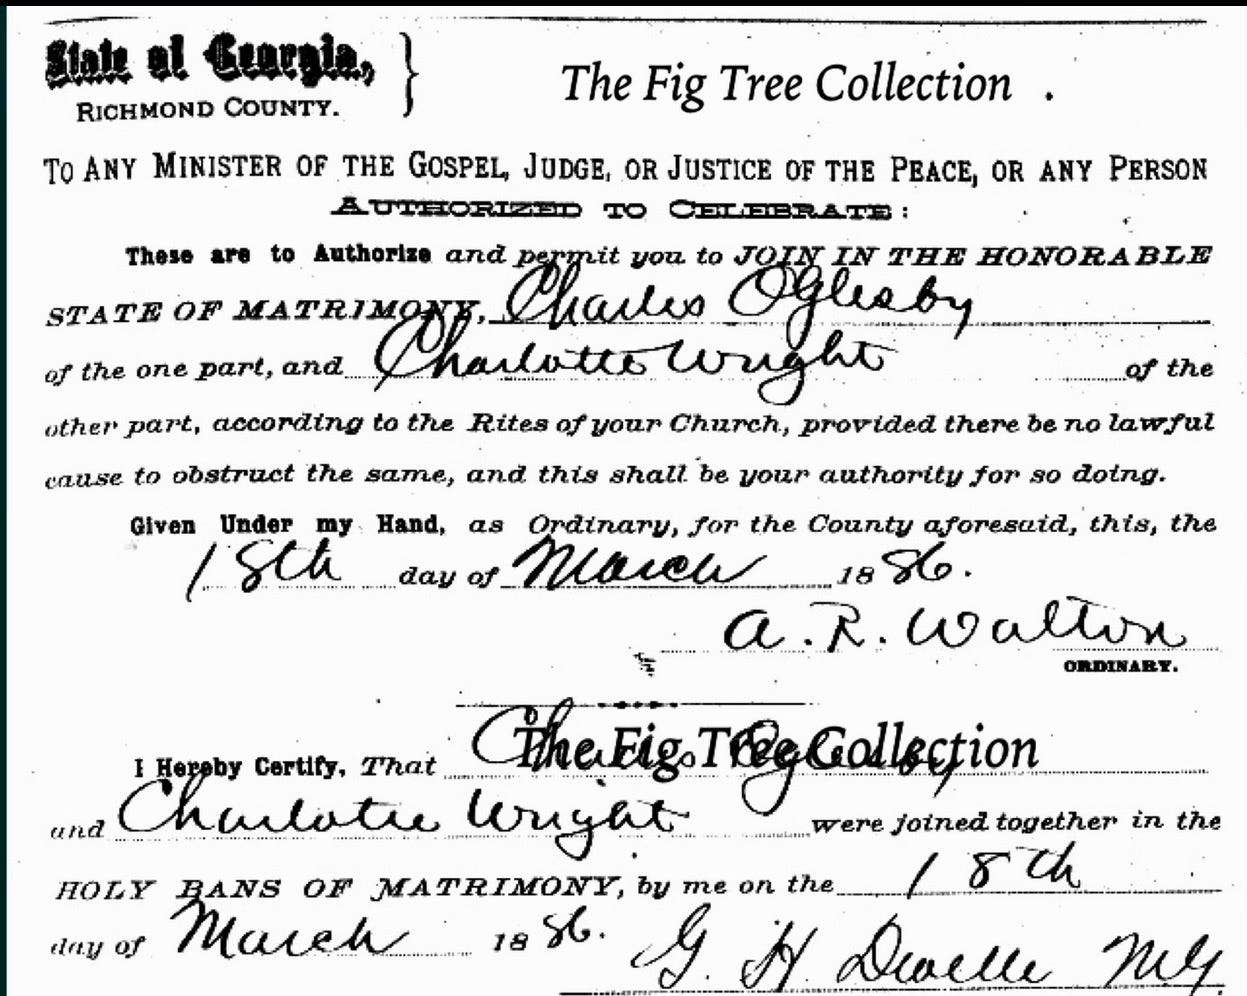 State of Georgia,
RICHMOND COUNTY.
The Fig Tree Collection
TO ANY MINISTER OF THE GOSPEL, JUDGE, OR JUSTICE OF THE PEACE, OR ANY PERSON
AUTHORIZED TO CELEBRATE:
These are to Authorize and permit you to JOIN IN THE HONORABLE
STATE OF MATRIMONY, Charles Oglesby
of the one part, and Charlotte Wright of the
other part, according to the Rites of your Church, provided there be no lawful
cause to obstruct the same, and this shall be your authority for so doing.
Given Under my Hand, as Ordinary, for the County aforesaid, this, the
18th day of March 1886.
A. R. Walton
ORDINARY.
The Fig Tree Collection
I Hereby Certify, That Charles Oglesby
and Charlotte Wright were joined together in the
HOLY BANS OF MATRIMONY, by me on the 18th
day of March 1886. G. H. Dwelle M.G.